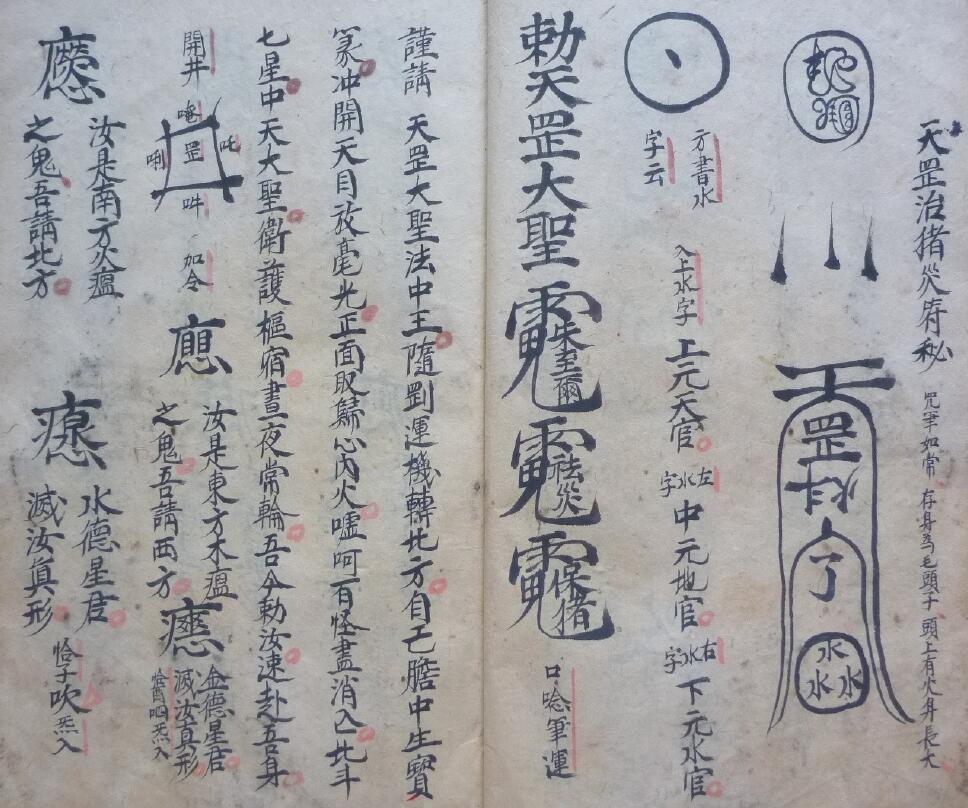 天罡治猪災符秘
咒筆如常 存身爲毛頭子 頭上有火身長大
天罡
了
水水水
方書水
字云
入上水字 上元天官 左水字 中元地官 右水字 下元水官
勅天罡大聖
朱至爾
祛災
保猪
口唸筆運
謹請 天罡大聖法中王隨劄運機轉北方自乙膽中生寶
篆冲開天目放毫光正面取歸心內火嘘呵有怪盡消亡北斗
七星中天大聖衛護樞宿晝夜常輪吾今勅汝速赴吾身
開井
罡
吽
如令
汝是東方木瘟
之鬼吾請西方
金德星君
滅汝真形
汝是南方火瘟
之鬼吾請北方
水德星君
滅汝真形
恰子吹炁入